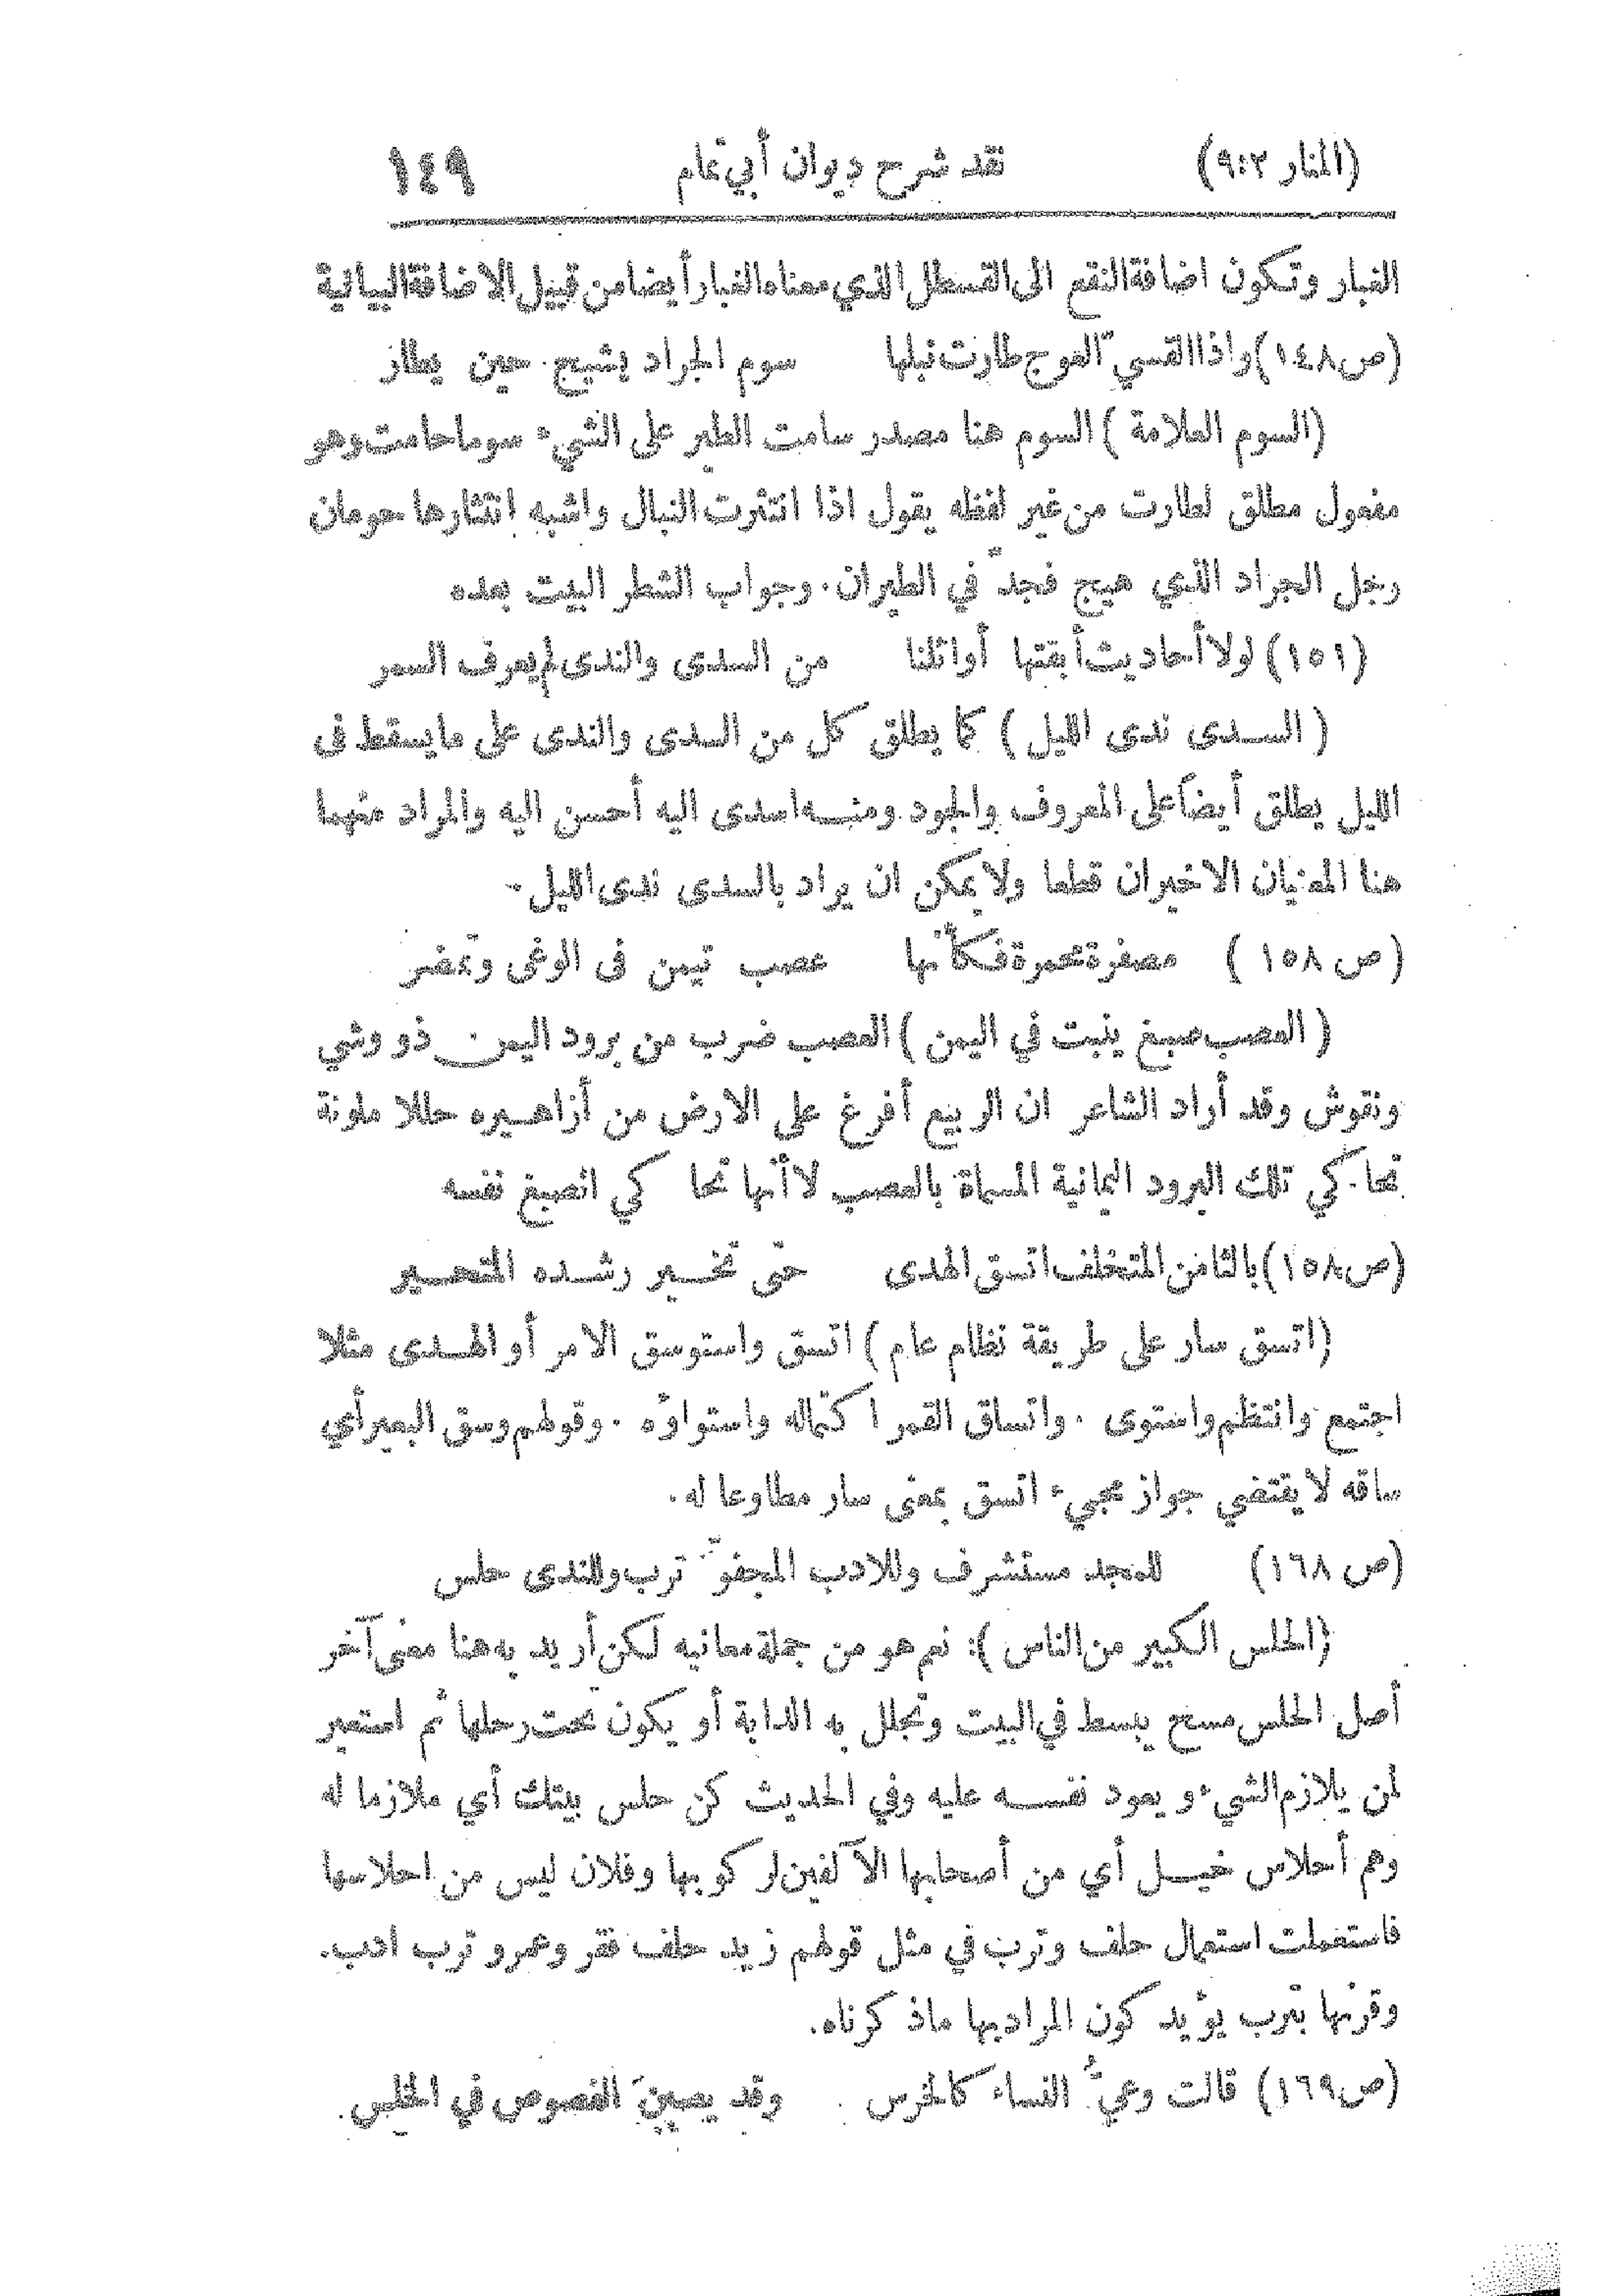 (المنار ٩:٢) نقد شرح ديوان أبي تمام ١٤٩
الغبار وتكون اضافة النقع الى القسطل الذي معناه الغبار أيضا من قبيل الاضافة البيانية
(ص١٤٨) واذا القسيّ العوج طارت نبلها سوم الجراد يشيح حين يطار
(السوم العلامة) السوم هنا مصدر سامت الطير على الشيء سوما حامت وهو
مفعول مطلق لطارت من غير لفظه يقول اذا انتثرت النبال واشبه انتثارها حومان
رجل الجراد الذي هيج فجدّ في الطيران. وجواب الشطر البيت بعده
(١٥١) لولا أحاديث أبقتها أوائلنا من السدى والندى لم يعرف السمر
(السدى ندى الليل) كما يطلق كل من السدى والندى على ما يسقط فى
الليل يطلق أيضاً على المعروف والجود ومنه اسدى اليه أحسن اليه والمراد منهما
هنا المعنيان الاخيران قطعا ولا يمكن ان يراد بالسدى ندى الليل.
(ص ١٥٨) مصفرة محمرة فكأنها عصب تيمن فى الوغى وتمضر
(العصب صبغ ينبت في اليمن) العصب ضرب من برود اليمن ذو وشي
ونقوش وقد أراد الشاعر ان الربيع أفرغ على الارض من أزاهيره حللا ملونة
تحاكي تلك البرود اليمانية المسماة بالعصب لا أنها تحاكي الصبغ نفسه
(ص١٥٨) بالثامن المتخلف اتسق الهدى حتى تخير رشده المتحير
(اتسق سار على طريقة نظام عام) اتسق واستوسق الامر أو الهدى مثلا
اجتمع وانتظم واستوى. واتساق القمر اكتماله واستواؤه. وقولهم وسق البعير أي
ساقه لا يقتضي جواز مجيء اتسق بمعنى سار مطاوعا له.
(ص ١٦٨) للمجد مستشرف وللادب المجفوّ ترب وللندى حلس
(الحلس الكبير من الناس): نعم هو من جملة معانيه لكن أريد به هنا معنى آخر
أصل الحلس مسح يبسط في البيت وتجلل به الدابة أو يكون تحت رحلها ثم استعير
لمن يلازم الشيء ويعود نفسه عليه وفي الحديث كن حلس بيتك أي ملازما له
وهم أحلاس خيل أي من أصحابها الآلفين لركوبها وفلان ليس من احلاسها
فاستعملت استعمال حلف وترب في مثل قولهم زيد حلف فقر وعمرو ترب ادب.
وقرنها بترب يؤيد كون المراد بها ماذكرناه.
(ص١٦٩) قالت وعيُّ النساء كالخرس وقد يصبنَ الفصوص في الخلس.